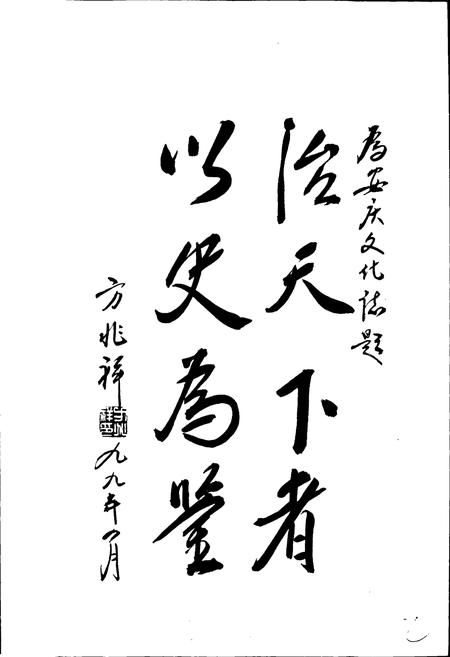 為安庆文化志題
治天下者
以史為鉴
方兆祥
九九年八月